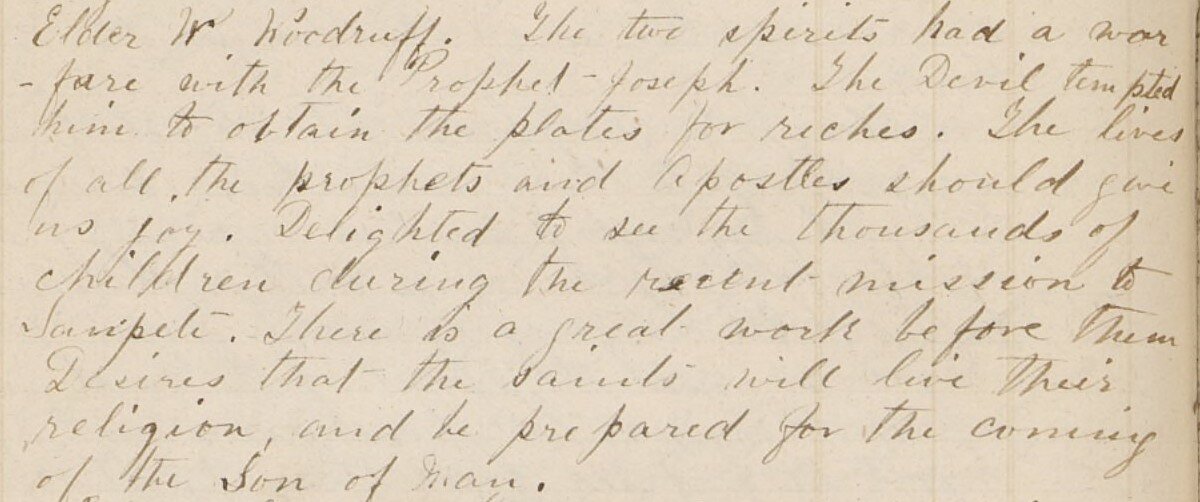 Elder W Woodruff. The two spirits had a war
-fare with the Prophet Joseph. The Devil tempted
him to obtain the plates for riches. The lives
of all the prophets and Apostles should give
us joy. Delighted to see the thousands of
children during the recent mission to
Sanpete. There is a great work before them
Desires that the saints will live their
religion, and be prepared for the coming
of the Son of Man.